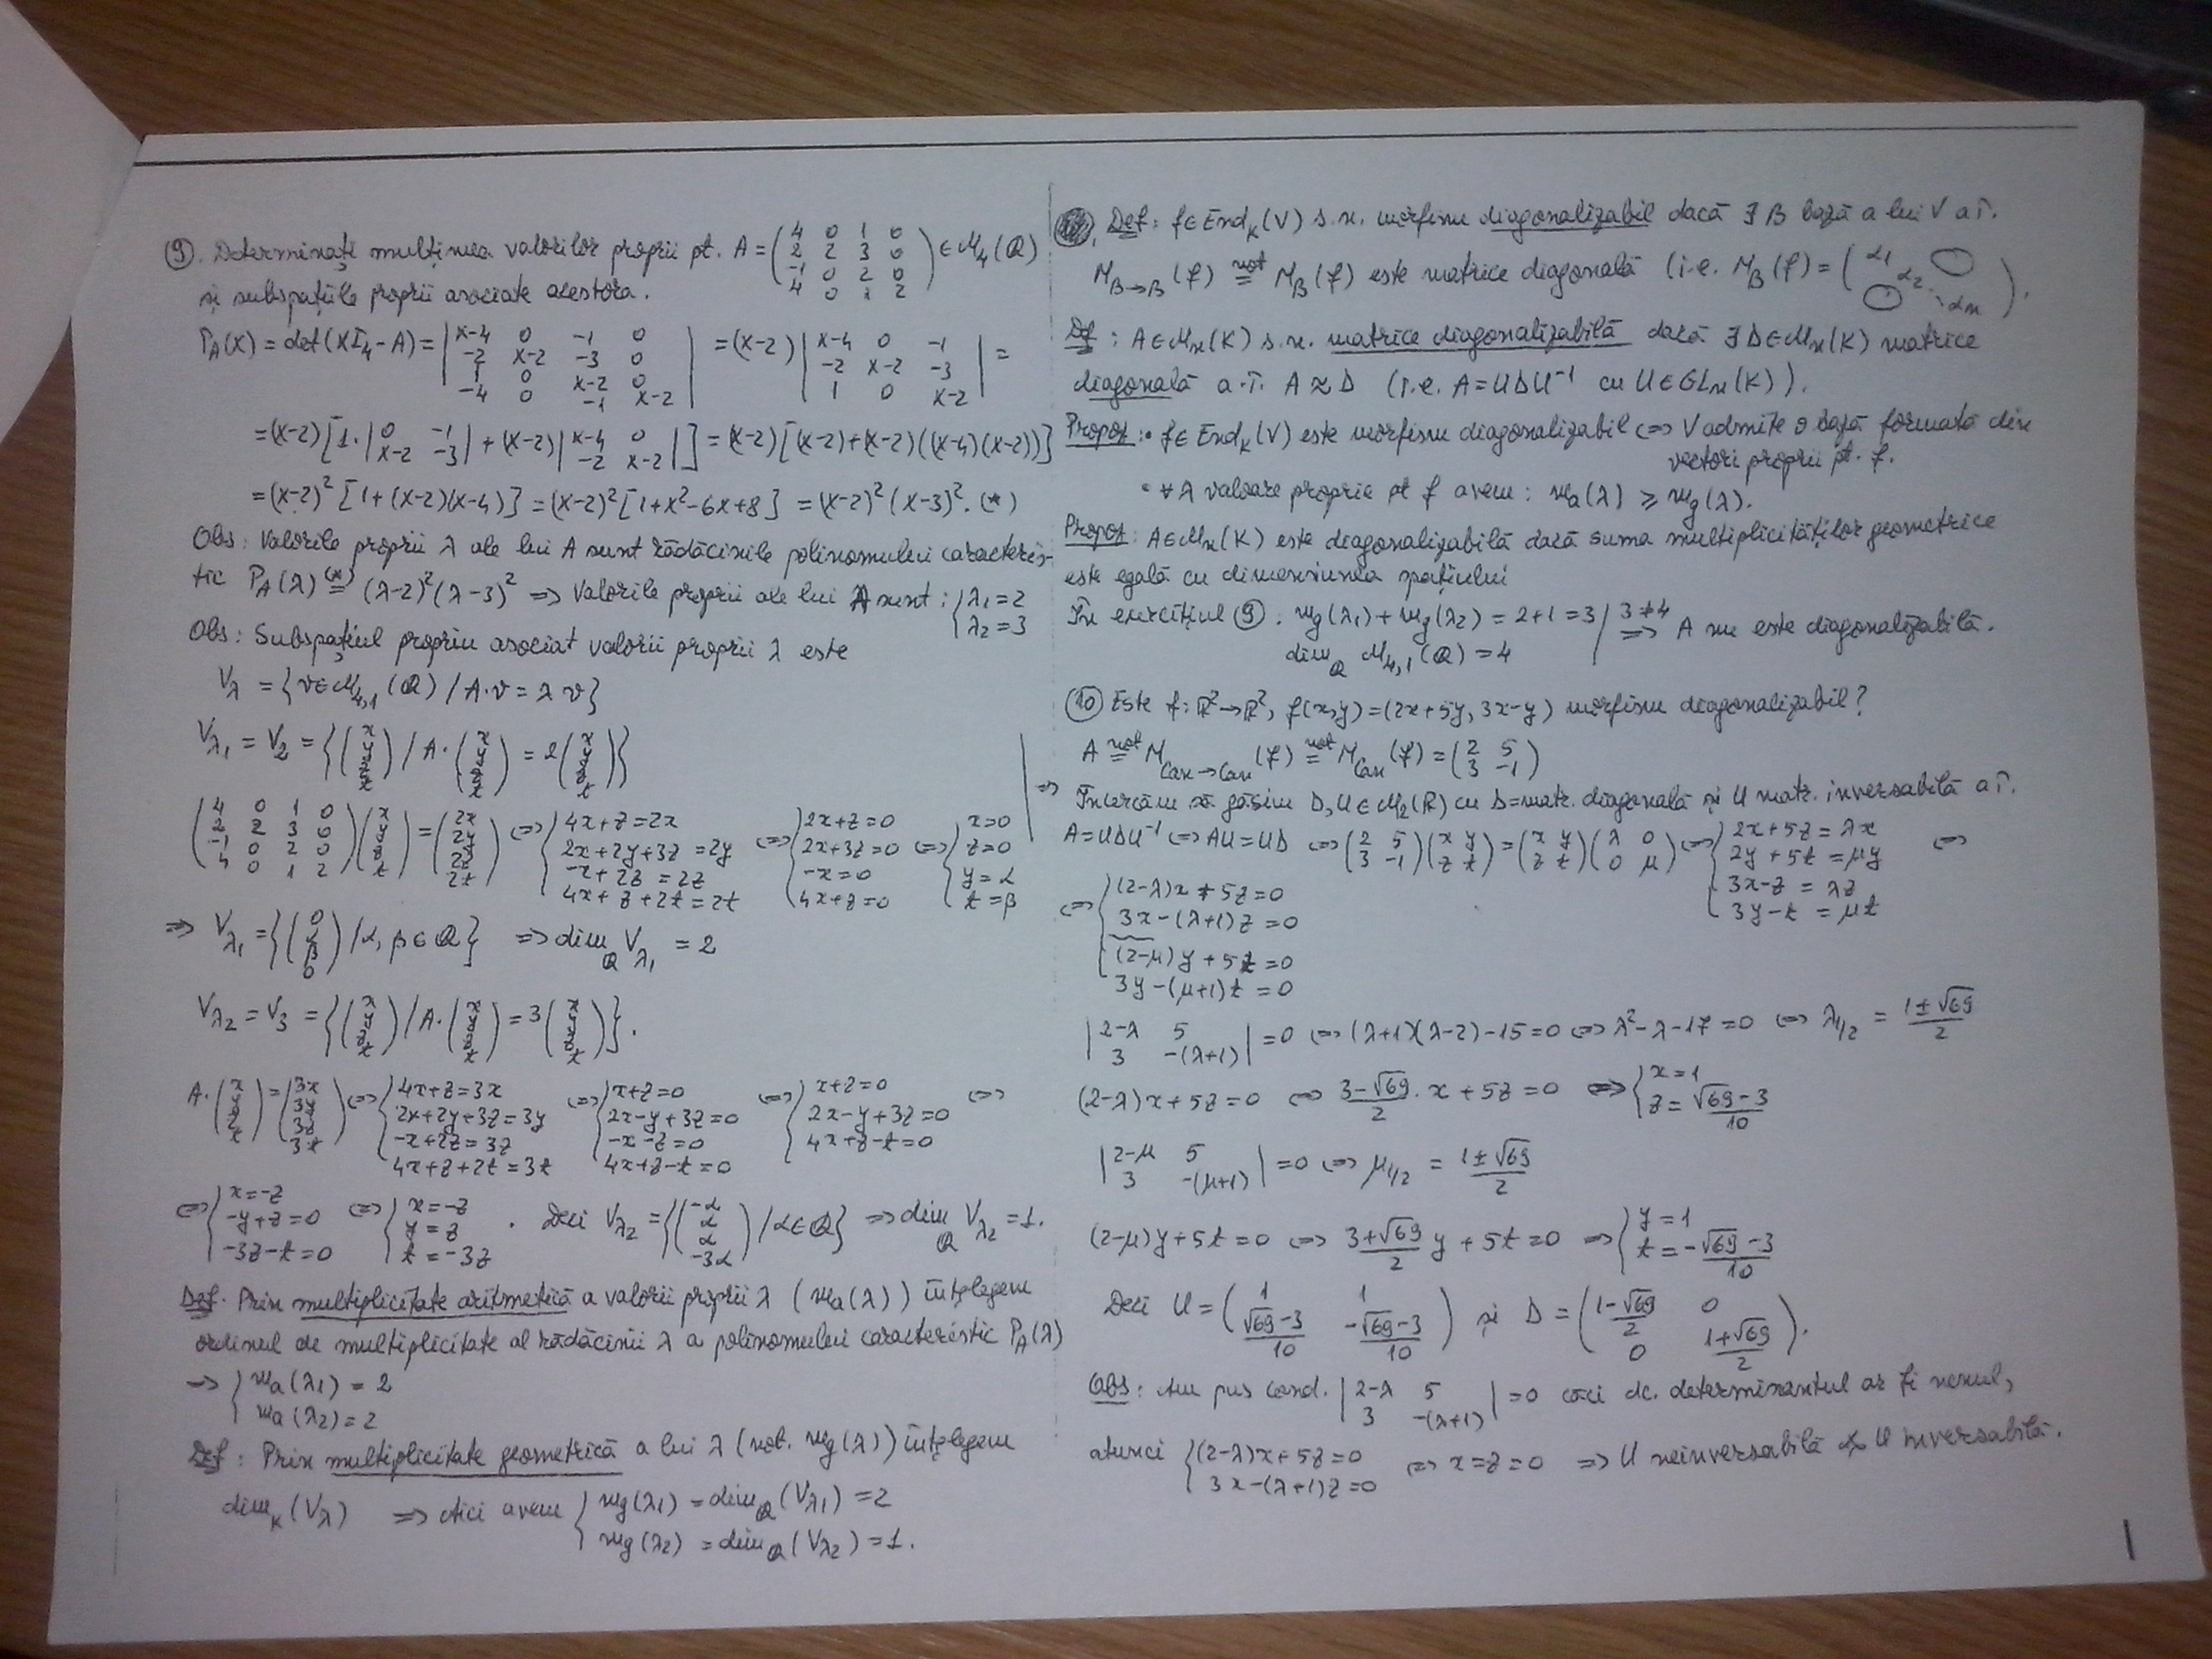 ⑨. Determinați mulțimea valorilor proprii pt. A = (4 0 1 0; 2 2 3 0; -1 0 2 0; 4 0 1 2) ∈ M₄(Q)
și subspațiile proprii asociate acestora.
P_A(X) = det(XI₄-A) = |X-4 0 -1 0; -2 X-2 -3 0; 1 0 X-2 0; -4 0 -1 X-2| = (X-2) |X-4 0 -1; -2 X-2 -3; 1 0 X-2| =
= (X-2) [1·|0 -1; X-2 -3| + (X-2) |X-4 0; -2 X-2|] = (X-2) [(X-2) + (X-2)((X-4)(X-2))]
= (X-2)² [1+(X-2)(X-4)] = (X-2)² [1+X²-6X+8] = (X-2)² (X-3)². (*)
Obs: Valorile proprii λ ale lui A sunt rădăcinile polinomului caracteris-
tic P_A(λ) (*)= (λ-2)²(λ-3)² => Valorile proprii ale lui A sunt: { λ₁=2; λ₂=3
Obs: Subspațiul propriu asociat valorii proprii λ este
V_λ = {v∈M₄,₁(Q) / A·v = λv}
V_λ₁ = V₂ = {(x; y; z; t) / A·(x; y; z; t) = 2(x; y; z; t)}
(4 0 1 0; 2 2 3 0; -1 0 2 0; 4 0 1 2)(x; y; z; t) = (2x; 2y; 2z; 2t) <=> { 4x+z=2x; 2x+2y+3z=2y; -x+2z=2z; 4x+z+2t=2t <=> { 2x+z=0; 2x+3z=0; -x=0; 4x+z=0 <=> { x=0; z=0; y=α; t=β =>
=> V_λ₁ = {(0; α; β; 0) / α, β∈Q} => dim_Q V_λ₁ = 2
V_λ₂ = V₃ = {(x; y; z; t) / A·(x; y; z; t) = 3(x; y; z; t)}.
A·(x; y; z; t) = (3x; 3y; 3z; 3t) <=> { 4x+z=3x; 2x+2y+3z=3y; -x+2z=3z; 4x+z+2t=3t <=> { x+z=0; 2x-y+3z=0; -x-z=0; 4x+z-t=0 <=> { x+z=0; 2x-y+3z=0; 4x+z-t=0 <=>
<=> { x=-z; -y+z=0; -3z-t=0 <=> { x=-z; y=z; t=-3z . Deci V_λ₂ = {(-α; α; α; -3α) / α∈Q} => dim_Q V_λ₂ = 1.
Def. Prin multiplicitate aritmetică a valorii proprii λ (m_a(λ)) înțelegem
ordinul de multiplicitate al rădăcinii λ a polinomului caracteristic P_A(λ)
=> { m_a(λ₁) = 2
m_a(λ₂) = 2
Def: Prin multiplicitate geometrică a lui λ (not. m_g(λ)) înțelegem
dim_K(V_λ) => Aici avem { m_g(λ₁) = dim_Q(V_λ₁) = 2
m_g(λ₂) = dim_Q(V_λ₂) = 1.
Def: f∈End_K(V) s.n. morfism diagonalizabil dacă ∃ B bază a lui V a.î.
M_B→B(f) not= M_B(f) este matrice diagonală (i.e. M_B(f) = (α₁ 0; α₂ ⋱; 0 αₙ)).
Def: A∈Mₙ(K) s.n. matrice diagonalizabilă dacă ∃ D∈Mₙ(K) matrice
diagonală a.î. A ≈ D (i.e. A = UDU⁻¹ cu U∈GLₙ(K)).
Propoz: • f∈End_K(V) este morfism diagonalizabil <=> V admite o bază formată din
vectori proprii pt. f.
• ∀ λ valoare proprie pt f avem: m_a(λ) ≥ m_g(λ).
Propoz: A∈Mₙ(K) este diagonalizabilă dacă suma multiplicităților geometrice
este egală cu dimensiunea spațiului
În exercițiul ⑨. m_g(λ₁)+m_g(λ₂) = 2+1 = 3 | 3≠4 => A nu este diagonalizabilă.
dim_Q M₄,₁(Q) = 4
⑩ Este f: R²→R², f(x,y)=(2x+5y, 3x-y) morfism diagonalizabil?
A not= M_Can→Can(f) not= M_Can(f) = (2 5; 3 -1)
Încercăm să găsim D, U ∈ M₂(R) cu D=matr. diagonală și U matr. inversabilă a.î.
A=UDU⁻¹ <=> AU=UD <=> (2 5; 3 -1)(x y; z t) = (x y; z t)(λ 0; 0 μ) <=> { 2x+5z = λx; 2y+5t = μy; 3x-z = λz; 3y-t = μt <=>
<=> { (2-λ)x+5z=0
3x-(λ+1)z=0
{ (2-μ)y+5t=0
3y-(μ+1)t=0
|2-λ 5; 3 -(λ+1)| = 0 <=> (λ+1)(λ-2)-15=0 <=> λ²-λ-17=0 <=> λ₁/₂ = (1±√69)/2
(2-λ)x+5z=0 <=> (3-√69)/2 · x + 5z = 0 => { x=1; z=(√69-3)/10
|2-μ 5; 3 -(μ+1)| = 0 <=> μ₁/₂ = (1±√69)/2
(2-μ)y+5t=0 <=> (3+√69)/2 y + 5t=0 => { y=1; t=(-√69-3)/10
Deci U = (1 1; (√69-3)/10 (-√69-3)/10) și D = ((1-√69)/2 0; 0 (1+√69)/2).
Obs: Am pus cond. |2-λ 5; 3 -(λ+1)| = 0 căci dc. determinantul ar fi nenul,
atunci { (2-λ)x+5z=0; 3x-(λ+1)z=0 <=> x=z=0 => U neinversabilă ✗ U inversabilă.